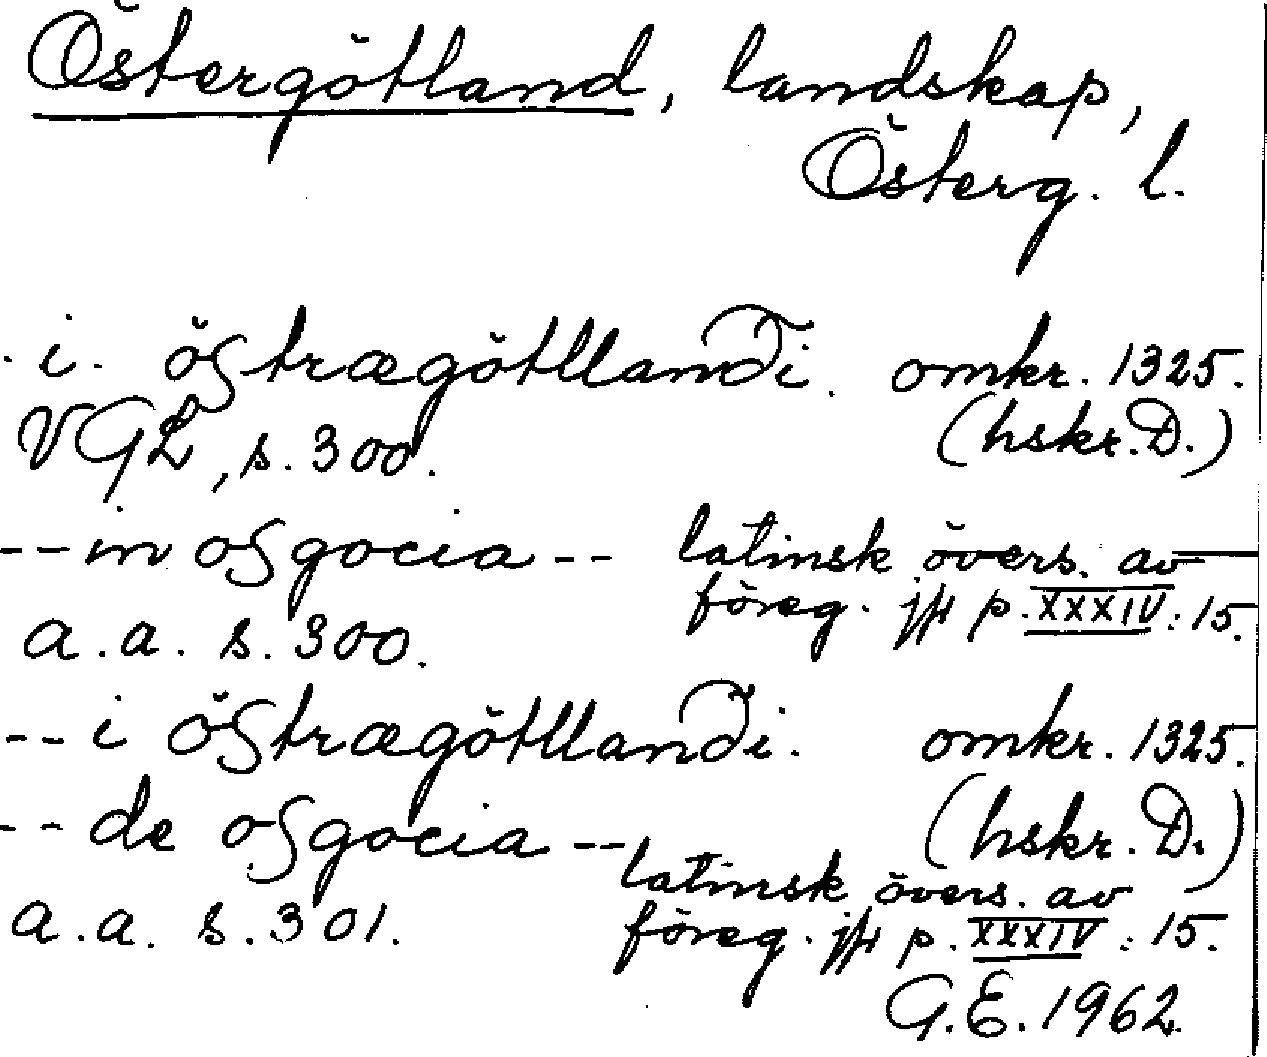 Östergötland, landskap,
Österg. l.
. i . östrægötllandi . omkr. 1325.
VGL, s. 300. (hskr. D.)
-- in osgocia -- latinsk övers. av
föreg. jfr p. XXXIV : 15.
a. a. s. 300.
-- i östrægötllandi . omkr. 1325.
-- de osgocia -- (hskr. D.)
latinsk övers. av
a. a. s. 301. föreg. jfr p. XXXIV : 15.
G. E. 1962